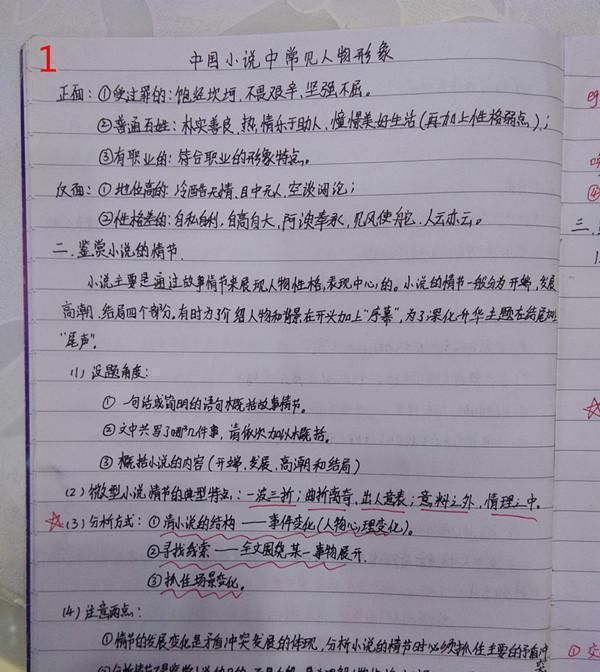 1
中国小说中常见人物形象
正面：①受过罪的：饱经坎坷，不畏艰辛，坚强不屈。
②普通百姓：朴实善良，热情乐于助人，憧憬美好生活（再加上性格弱点）；
③有职业的：符合职业的形象特点。
反面：①地位高的：冷酷无情，目中无人，空谈阔论；
②性格差的：自私自利，自高自大，阿谀奉承，见风使舵，人云亦云。
二、鉴赏小说的情节
小说主要是通过故事情节来展现人物性格，表现中心的。小说的情节一般分为开端，发展
高潮、结局四个部分。有时为了介绍人物和背景在开头加上“序幕”，为了深化升华主题在结尾加
“尾声”。
(1) 设题角度：
① 一句话或简明的语句概括故事情节。
② 文中共写了哪几件事，请依次加以概括。
③ 概括小说的内容（开端、发展、高潮和结局）
(2) 微型小说情节的典型特点：一波三折；曲折离奇，出人意表；意料之外，情理之中。
(3) 分析方式：①清小说的结构——事件变化（人物心理变化）。
②寻找线索——全文围绕某一事物展开。
③抓住场景变化。
(4) 注意两点：
①情节的发展变化是矛盾冲突发展的体现，分析小说的情节时必须抓住主要的矛盾冲
突
三、
① 交